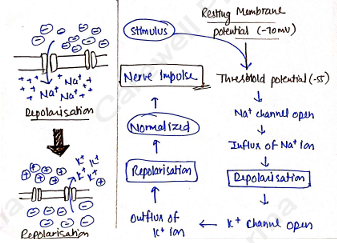 Na⁺ Na⁺
Na⁺ Na⁺
Depolarisation
K⁺ K⁺
K⁺
Repolarisation
Stimulus
Resting Membrane
potential (-70mV)
Threshold potential (-55)
Na⁺ channel open
Influx of Na⁺ Ion
Depolarisation
K⁺ Channel open
Outflux of
K⁺ Ion
Repolarisation
Normalized
Nerve Impulse